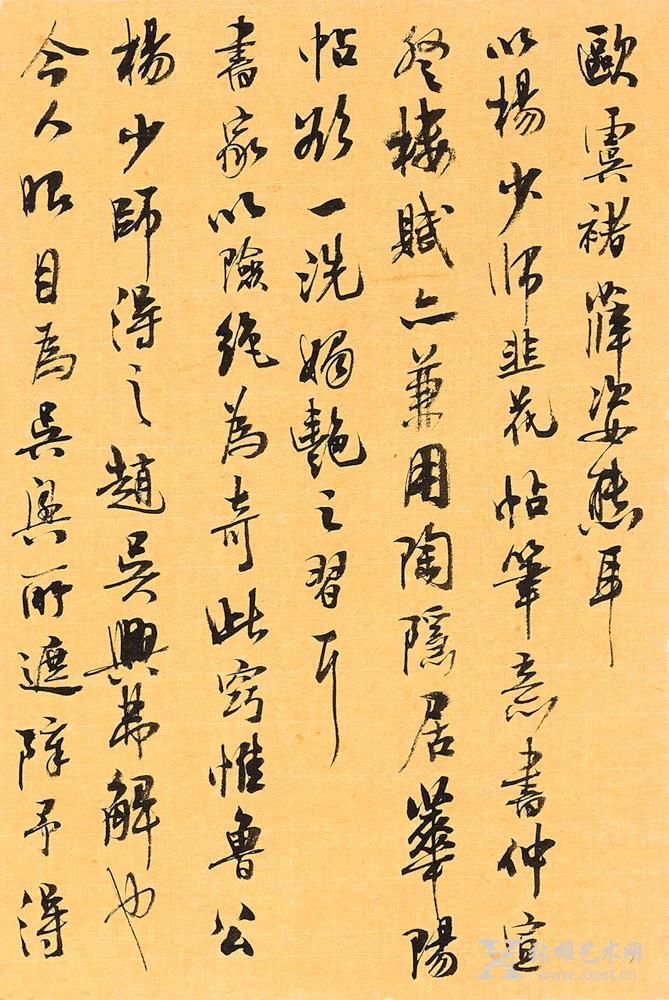 歐虞褚薛姿態耳
以楊少師韭花帖筆意書仲宣
登樓賦亦兼用陶隱居華陽
帖欲一洗媚艷之習耳
書家以險絕為奇此竅惟魯公
楊少師得之趙吳興弗解也
今人眼目為吳興所遮障予得
张雄艺术网
www.zxart.cn